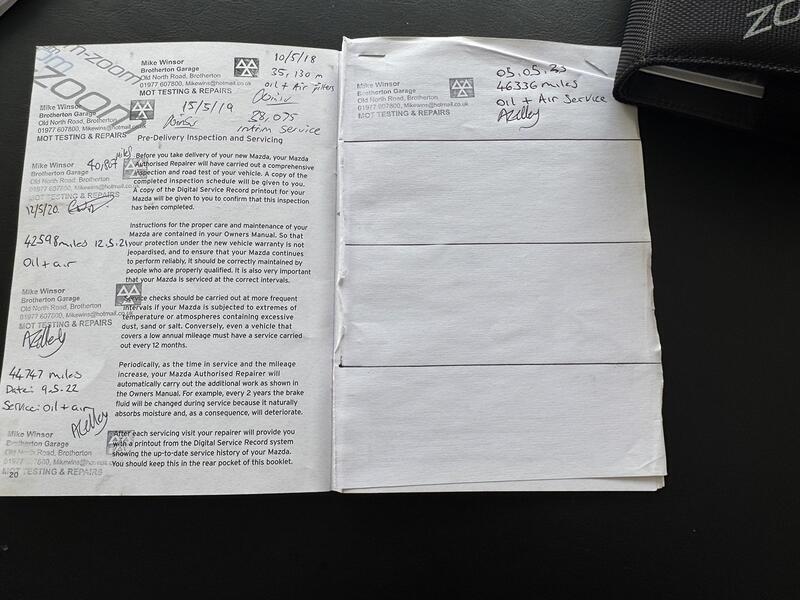 m-zoom
zoom
Mike Winsor
Brotherton Garage
Old North Road, Brotherton
01977 607800, Mikewins@hotmail.co.uk
MOT TESTING & REPAIRS
10/5/18
35,130 m
Oil + Air filters
Mike Winsor
Brotherton Garage
Old North Road, Brotherton
01977 607800, Mikewins@hotmail.co.uk
MOT TESTING & REPAIRS
15/5/19
38,075
intrim Service
Pre-Delivery Inspection and Servicing
Mike Winsor
Brotherton Garage
Old North Road, Brotherton
01977 607800, Mikewins@hotmail.co.uk
MOT TESTING & REPAIRS
40,807 miles
12/5/20
Before you take delivery of your new Mazda, your Mazda
Authorised Repairer will have carried out a comprehensive
inspection and road test of your vehicle. A copy of the
completed inspection schedule will be given to you.
A copy of the Digital Service Record printout for your
Mazda will be given to you to confirm that this inspection
has been completed.
42598 miles 12.5.21
Oil + air
Instructions for the proper care and maintenance of your
Mazda are contained in your Owners Manual. So that
your protection under the new vehicle warranty is not
jeopardised, and to ensure that your Mazda continues
to perform reliably, it should be correctly maintained by
people who are properly qualified. It is also very important
that your Mazda is serviced at the correct intervals.
Mike Winsor
Brotherton Garage
Old North Road, Brotherton
01977 607800, Mikewins@hotmail.co.uk
MOT TESTING & REPAIRS
Service checks should be carried out at more frequent
intervals if your Mazda is subjected to extremes of
temperature or atmospheres containing excessive
dust, sand or salt. Conversely, even a vehicle that
covers a low annual mileage must have a service carried
out every 12 months.
44747 miles
Date: 9.5.22
Service: Oil + air
Periodically, as the time in service and the mileage
increase, your Mazda Authorised Repairer will
automatically carry out the additional work as shown in
the Owners Manual. For example, every 2 years the brake
fluid will be changed during service because it naturally
absorbs moisture and, as a consequence, will deteriorate.
Mike Winsor
Brotherton Garage
Old North Road, Brotherton
01977 607800, Mikewins@hotmail.co.uk
MOT TESTING & REPAIRS
After each servicing visit your repairer will provide you
with a printout from the Digital Service Record system
showing the up-to-date service history of your Mazda.
You should keep this in the rear pocket of this booklet.
20
Mike Winsor
Brotherton Garage
Old North Road, Brotherton
01977 607800, Mikewins@hotmail.co.uk
MOT TESTING & REPAIRS
05.05.23
46336 miles
Oil + Air Service
ZO